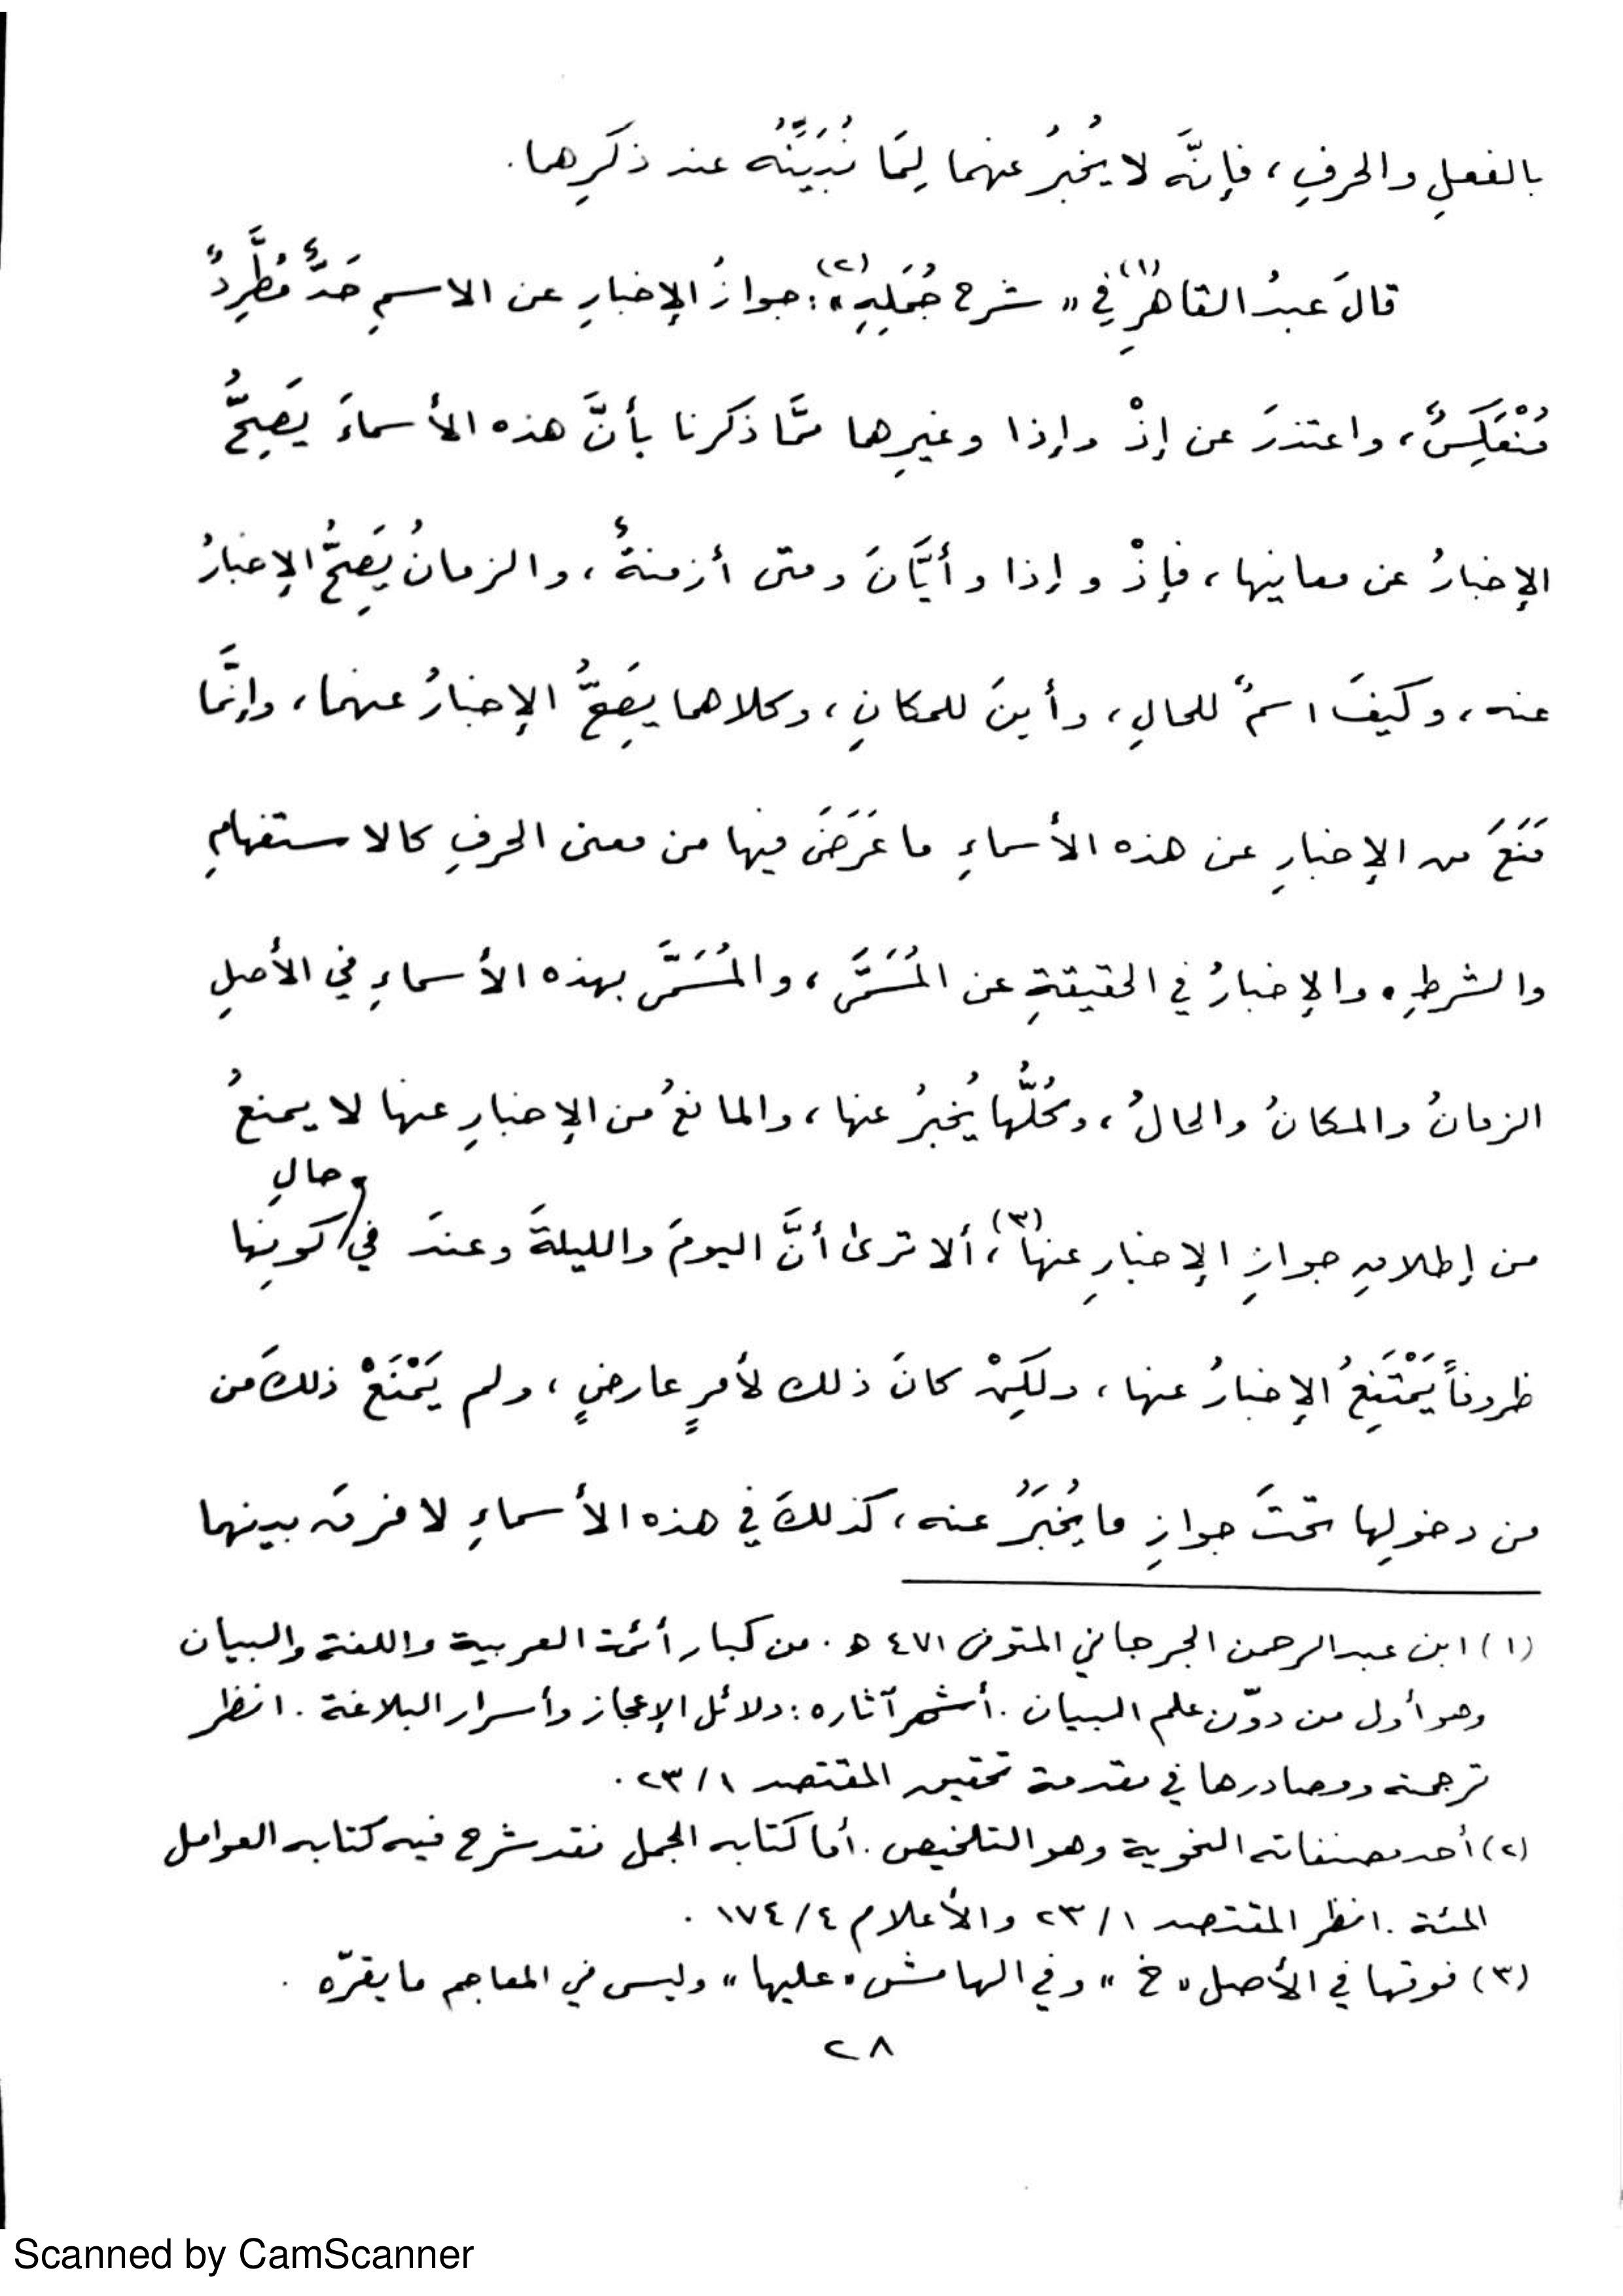 بالفعلِ والحرفِ، فإنَّه لا يُخبرُ عنهما لِمَا نُبَيِّنُه عند ذكَرِهما.
قالَ عبدُ القاهرِ(١) في « شرح جُمَلِهِ »(٢): جوازُ الإخبارِ عن الاسمِ حَدٌّ مُطَّرِدٌ
مُنْعَكِسٌ، واعتذرَ عن إذْ وإذا وغيرِها ممَّا ذكرنا بأنَّ هذه الأسماءَ يَصِحُّ
الإخبارُ عن معانيها، فإذْ وإذا وأيَّانَ ومتى أزمنةٌ، والزمانُ يَصِحُّ الإخبارُ
عنه، وكيفَ اسمٌ للحالِ، وأينَ للمكانِ، وكلاهما يصَِحُّ الإخبارُ عنهما، وإنَّما
مَنَعَ من الإخبارِ عن هذه الأسماءِ ما عَرَضَ فيها من معنى الحرفِ كالاستفهامِ
والشرطِ. والإخبارُ في الحقيقةِ عن المُسَمَّى، والمُسَمَّى بهذه الأسماءِ في الأصلِ
الزمانُ والمكانُ والحالُ، وكُلُّها يُخبرُ عنها، والمانعُ من الإخبارِ عنها لا يمنعُ
من إطلاقِ جوازِ الإخبارِ عنها(٣)، ألا ترى أنَّ اليومَ والليلةَ وعندَ في حالِ كونِها
ظروفاً يَمْتَنِعُ الإخبارُ عنها، ولكِنْ كانَ ذلك لأمرٍ عارضٍ، ولم يَمْنَعْ ذلكَ من
من دخولِها تحتَ جوازِ ما يُخبَرُ عنه، كذلكَ في هذه الأسماءِ لا فرقَ بينهما
(١) ابن عبدالرحمن الجرجاني المتوفى ٤٧١ ه. من كبار أئمة العربية واللغة والبيان
وهو أول من دوّن علم البيان. أشهر آثاره: دلائل الإعجاز وأسرار البلاغة. انظر
ترجمته ومصادرها في مقدمة تحقيق المقتصد ٢٣/١.
(٢) أحد مصنفاته النحوية وهو التلخيص. أما كتابه الجمل فقد شرح فيه كتابه العوامل
المئة. انظر المقتصد ٢٣/١ والأعلام ١٧٤/٤.
(٣) فوقها في الأصل « خ » وفي الهامش « عليها » وليس في المعاجم ما يقرّه.
٢٨
Scanned by CamScanner